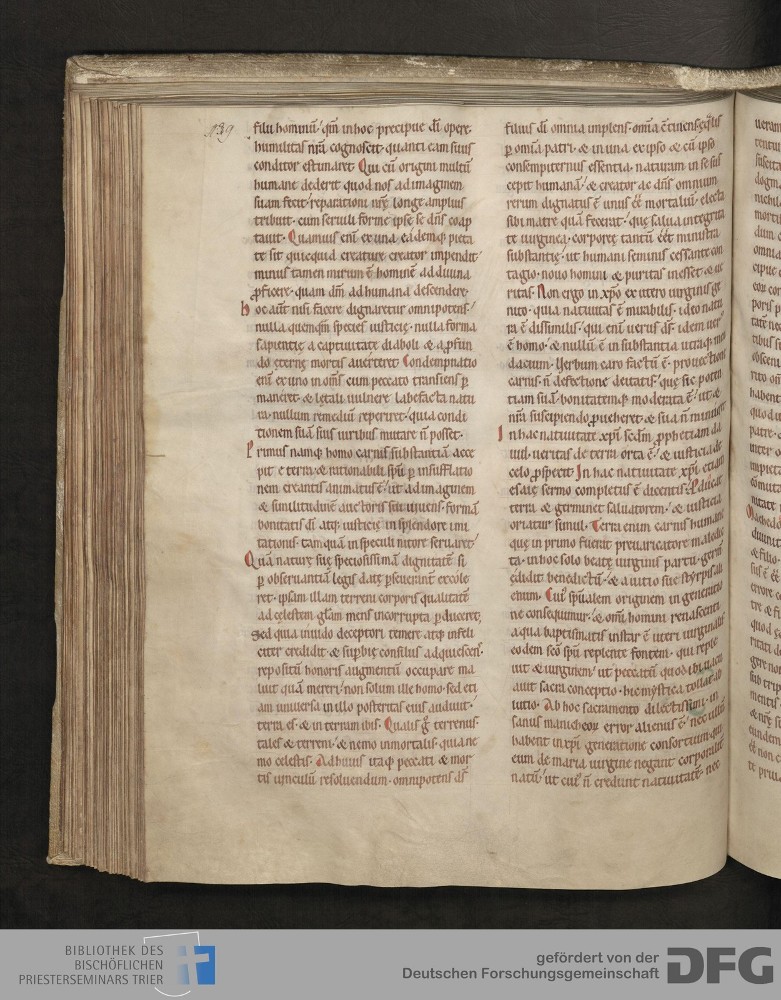 139
filii hominū. qm̄ in hoc precipue di opere
humilitas nrā cognoscit. quanti eam suus
conditor estimaret. Qui cū origini multū
humane dederit quod nos ad imaginem
suam fecit. reparationi nrę longe amplius
tribuit. cum seruili forme ipse se dn̄s coap
tauit. Quamuis enī ex una eademq; pieta
te sit quicquid creature creator impendit.
minus tamen mirum ē hominē ad diuina
ꝓficere. quam dm̄ ad humana descendere.
hoc aūt nisi facere dignaretur omnipotens.
nulla quemqm̄ species iusticię. nulla forma
sapientię a captiuitate diaboli & a ꝓfun
do ęternę mortis auerteret. Condempnatio
enī ex uno in om̄s cum peccato transiens ꝑ
maneret. & letali uulnere labefacta natu
ra. nullum remediū reperiret. quia condi
tionem suā suis uiribus mutare n̄ posset.
Primus namq; homo carnis substantiā acce
pit e terra. & rationabili spū ꝑ insufflatio
nem creantis animatus ē. ut ad imaginem
& similitudinē auctoris sui uiuens. formā
bonitatis dī atq; iusticię in splendore imi
tationis. tamquā in speculi nitore seruaret.
Quā naturę suę speciosissimā dignitatē si
ꝑ obseruantiā legis datę ꝑseuerint excole
ret. ipsam illam terreni corporis qualitatē
ad celestem glām mens incorrupta ꝑduceret.
Sed quia inuido deceptori temere atq; infeli
citer credidit. & supbię consiliis adquiescens.
repositū honoris augmentū occupare ma
luit quā mereri. non solum ille homo. sed eti
am uniuersa in illo posteritas eius audiuit.
terra es. & in terram ibis. Qualis g° terrenus.
tales & terreni. & nemo inmortalis. quia ne
mo celestis. Ad huius itaq; peccati & mor
tis uinculū resoluendum. omnipotens dī
filius dī omnia implens. omīa ętinens. ęqlis
ꝑ omīa patri. & in una ex ipso & cū ipso
consempiternus essentia. naturam in se sus
cepit humanā. & creator ac dn̄s omnium
rerum dignatus ē unus eē mortaliū. electa
sibi matre quā fecerat. quę salua integrita
te uirginea. corporeę tantū eēt ministra
substantię. ut humani seminis cessante con
tagio. nouo homini & puritas inesset & ue
ritas. Non ergo in xpō ex utero uirginis ge
nito. quia natiuitas ē mirabilis. ideo natu
ra ē dissimilis. qui enī uerus dī. idem uer
ē homo. & nullū ē in substantia utraq; men
dacium. Uerbum caro factū ē. prouectione
carnis. n̄ defectione deitatis. que sic poten
tiam suā. bonitatemq; moderata ē. ut &
nrā suscipiendo ꝓueheret. & sua n̄ minueret
In hac natiuitate xpī scdm ꝓphetiam da
uid. ueritas de terra orta ē. & iusticia de
celo ꝓspexit. In hac natiuitate xpī etiam
esaię sermo completus ē dicentis. Educat
terra & germinet saluatorem. & iusticia
oriatur simul. Terra enim carnis humane
que in primo fuerat preuaricatore maledic
ta. in hoc solo beate uirginis partu. germ̄
ędidit benedictū. & a uitio sue styrpis ali
enum. Cuī spūalem originem in generatio
ne consequimur. & omī homini renascenti.
aqua baptismatis instar ē uteri uirginalis
eodem scō spū replente fontem. qui reple
uit & uirginem. ut peccatū quod ibi uacu
auit sacra conceptio. hic mystica tollat ab
lutio. Ab hoc sacramento dilectissimi. in
sanus manicheoꝝ error alienus ē. nec ullū
habent in xpī generatione consortium. qui
eum de maria uirgine negant corporalit̄
natū. ut cuī n̄ credunt natiuitatē. nec
BIBLIOTHEK DES
BISCHÖFLICHEN
PRIESTERSEMINARS TRIER
gefördert von der
Deutschen Forschungsgemeinschaft
DFG